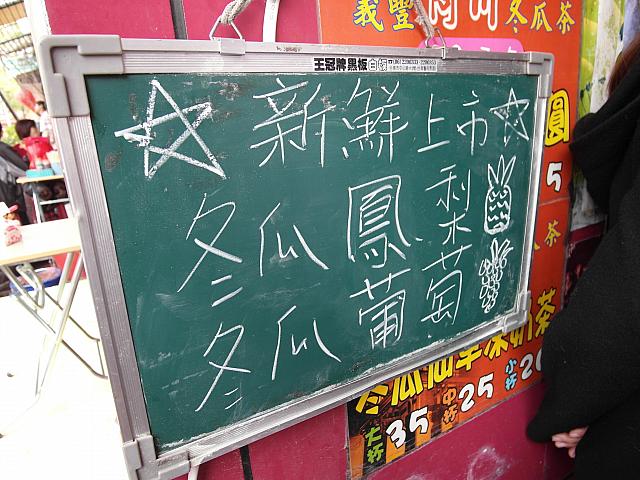 義豐 冬瓜茶
王冠牌黑板
新鮮上市
冬瓜鳳梨
冬瓜葡萄
圓
5
茶
冬瓜仙草凍奶茶
大杯35 中杯25 小杯20